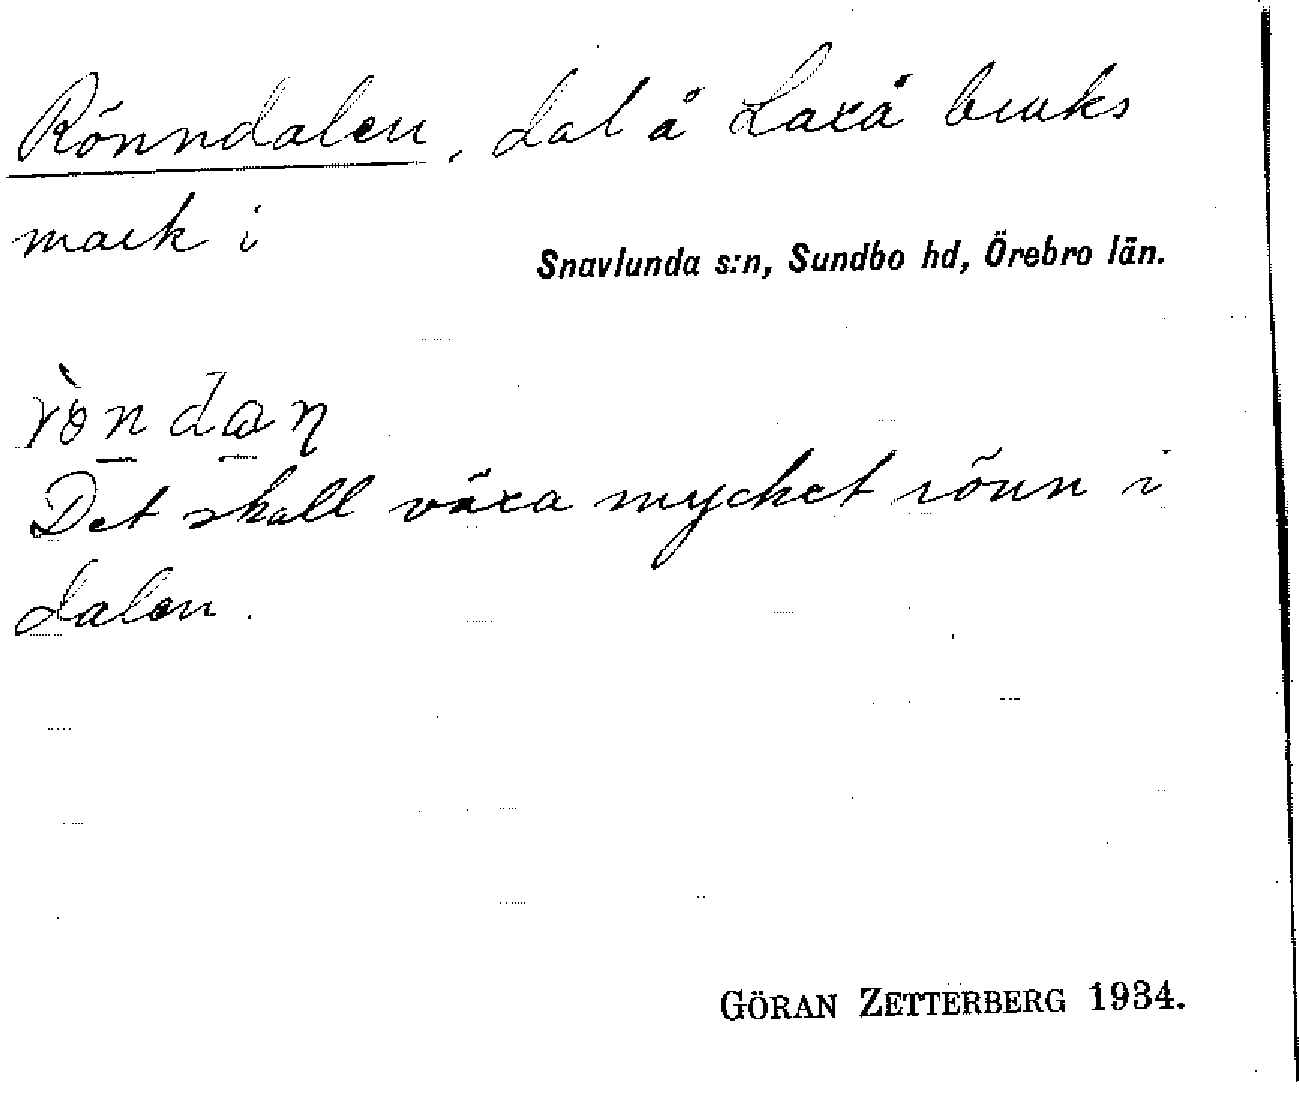 Rönndalen, dal å Laxå bruks
mark i
Snavlunda s:n, Sundbo hd, Örebro län.
Det skall växa mycket rönn i
dalen.
GÖRAN ZETTERBERG 1934.